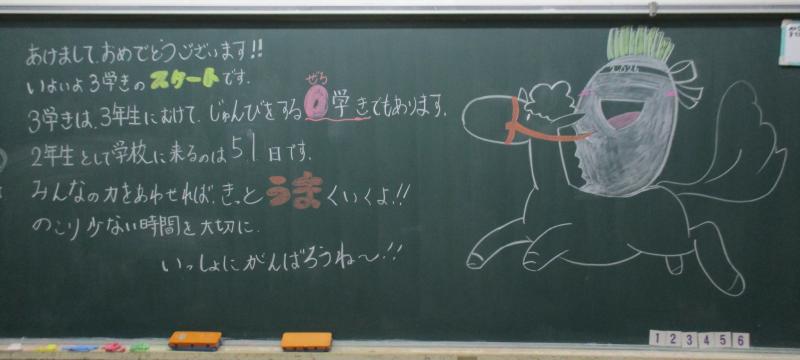 あけまして、おめでとうございます!!
いよいよ3学きのスタートです。
3学きは、3年生にむけて、じゅんびをする0学きでもあります。
ぜろ
2年生として学校に来るのは51日です。
みんなの力をあわせれば、きっとうまくいくよ!!
のこり少ない時間を大切に。
いっしょにがんばろうね〜!!
2026
1 2 3 4 5 6